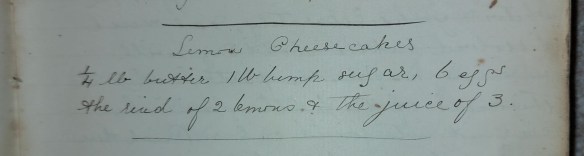 Lemon Cheesecakes
1/4 lb butter 1 lb lump sugar, 6 eggs
the rind of 2 lemons & the juice of 3.